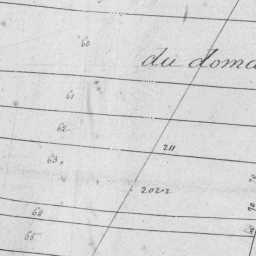 60
du doma
61
62
211
63
2022
68
65